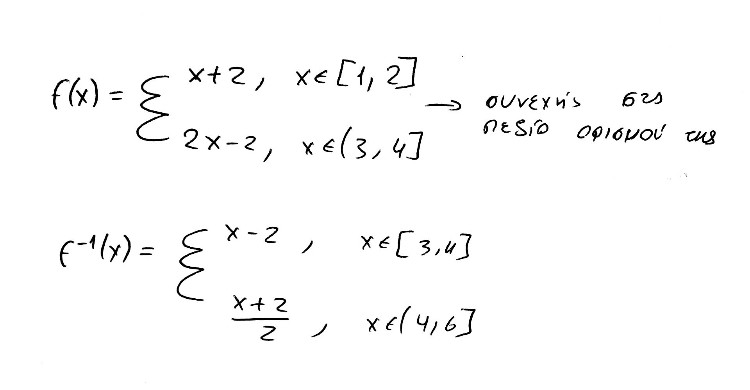 f(x) = { x+2, x∈[1,2]
2x-2, x∈(3,4] → συνεχής στο
πεδίο ορισμού της
f⁻¹(x) = { x-2, x∈[3,4]
x+2/2, x∈(4,6]